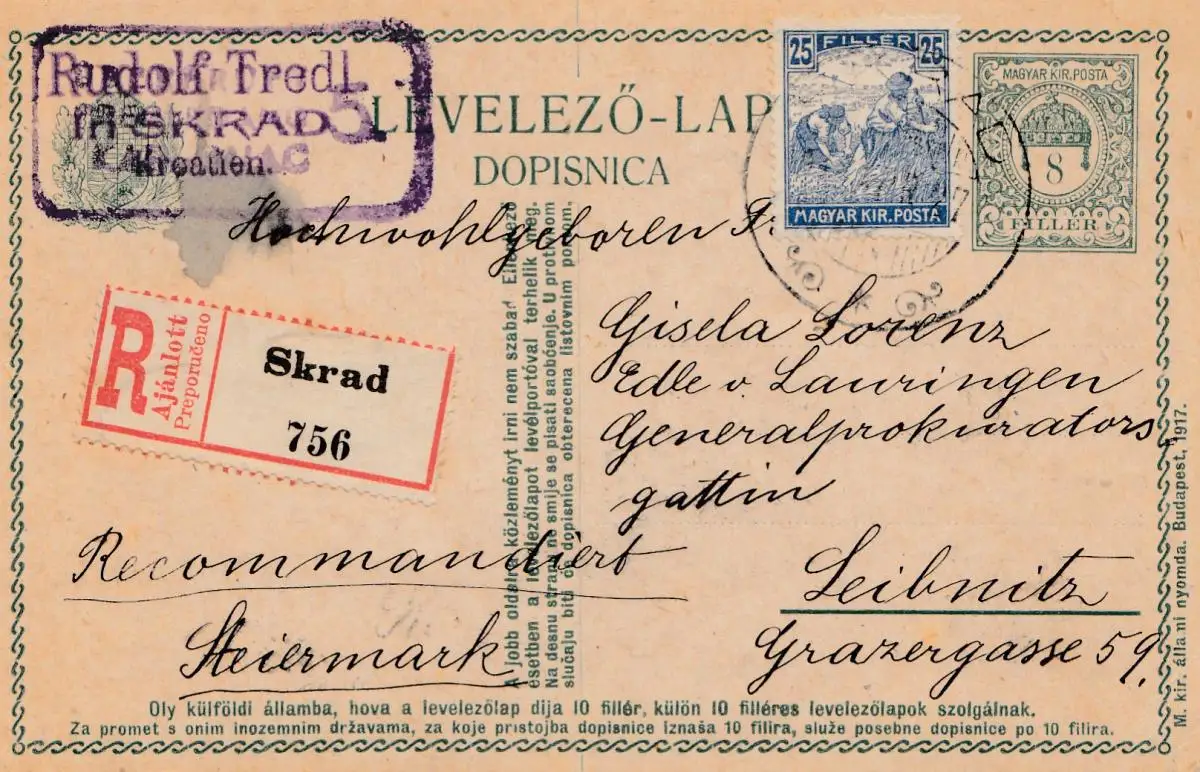 Rudolf Tredl
in SKRAD
Kroatien.
5
LEVELEZŐ-LAP
DOPISNICA
25 FILLER 25
MAGYAR KIR. POSTA
MAGYAR KIR. POSTA
8
FILLER
Hochwohlgeboren Fr.
Gisela Lorenz
Edle v. Lauringen
Generalprokurators
gattin
Leibnitz
Grazergasse 59.
R
Ajánlott
Preporučeno
Skrad
756
Recommandiert
Steiermark
A jobb oldalra közleményt irni nem szabad. Ellenkező
esetben a levelezőlapot levélportóval terhelik meg.
Na desnu stranu ne smije se pisati saobćenje. U protivnom
slučaju biti će dopisnica obterećena listovnim portom.
Oly külföldi államba, hova a levelezőlap dija 10 fillér, külön 10 filléres levelezőlapok szolgálnak.
Za promet s onim inozemnim državama, za koje pristojba dopisnice iznaša 10 filira, služe posebne dopisnice po 10 filira.
M. kir. állami nyomda. Budapest, 1917.